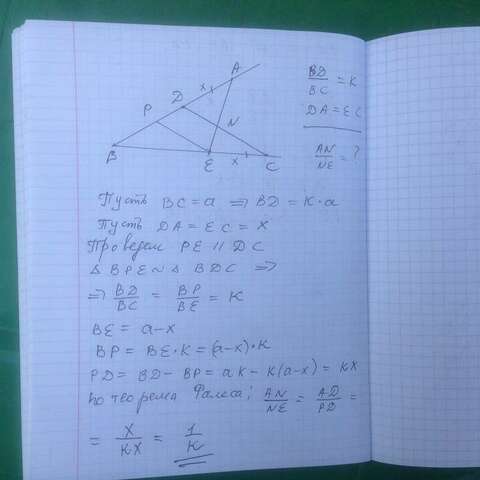 A
x
D
P
N
B
E
x
C
BD/BC = K
DA = EC
AN/NE = ?
Пусть BC = a ⇒ BD = K·a
Пусть DA = EC = x
Проведем PE || DC
△ BPE ~ △ BDC ⇒
⇒ BD/BC = BP/BE = K
BE = a-x
BP = BE·K = (a-x)·K
PD = BD - BP = aK - K(a-x) = KX
по теореме Фалеса; AN/NE = AD/PD =
= X/KX = 1/K